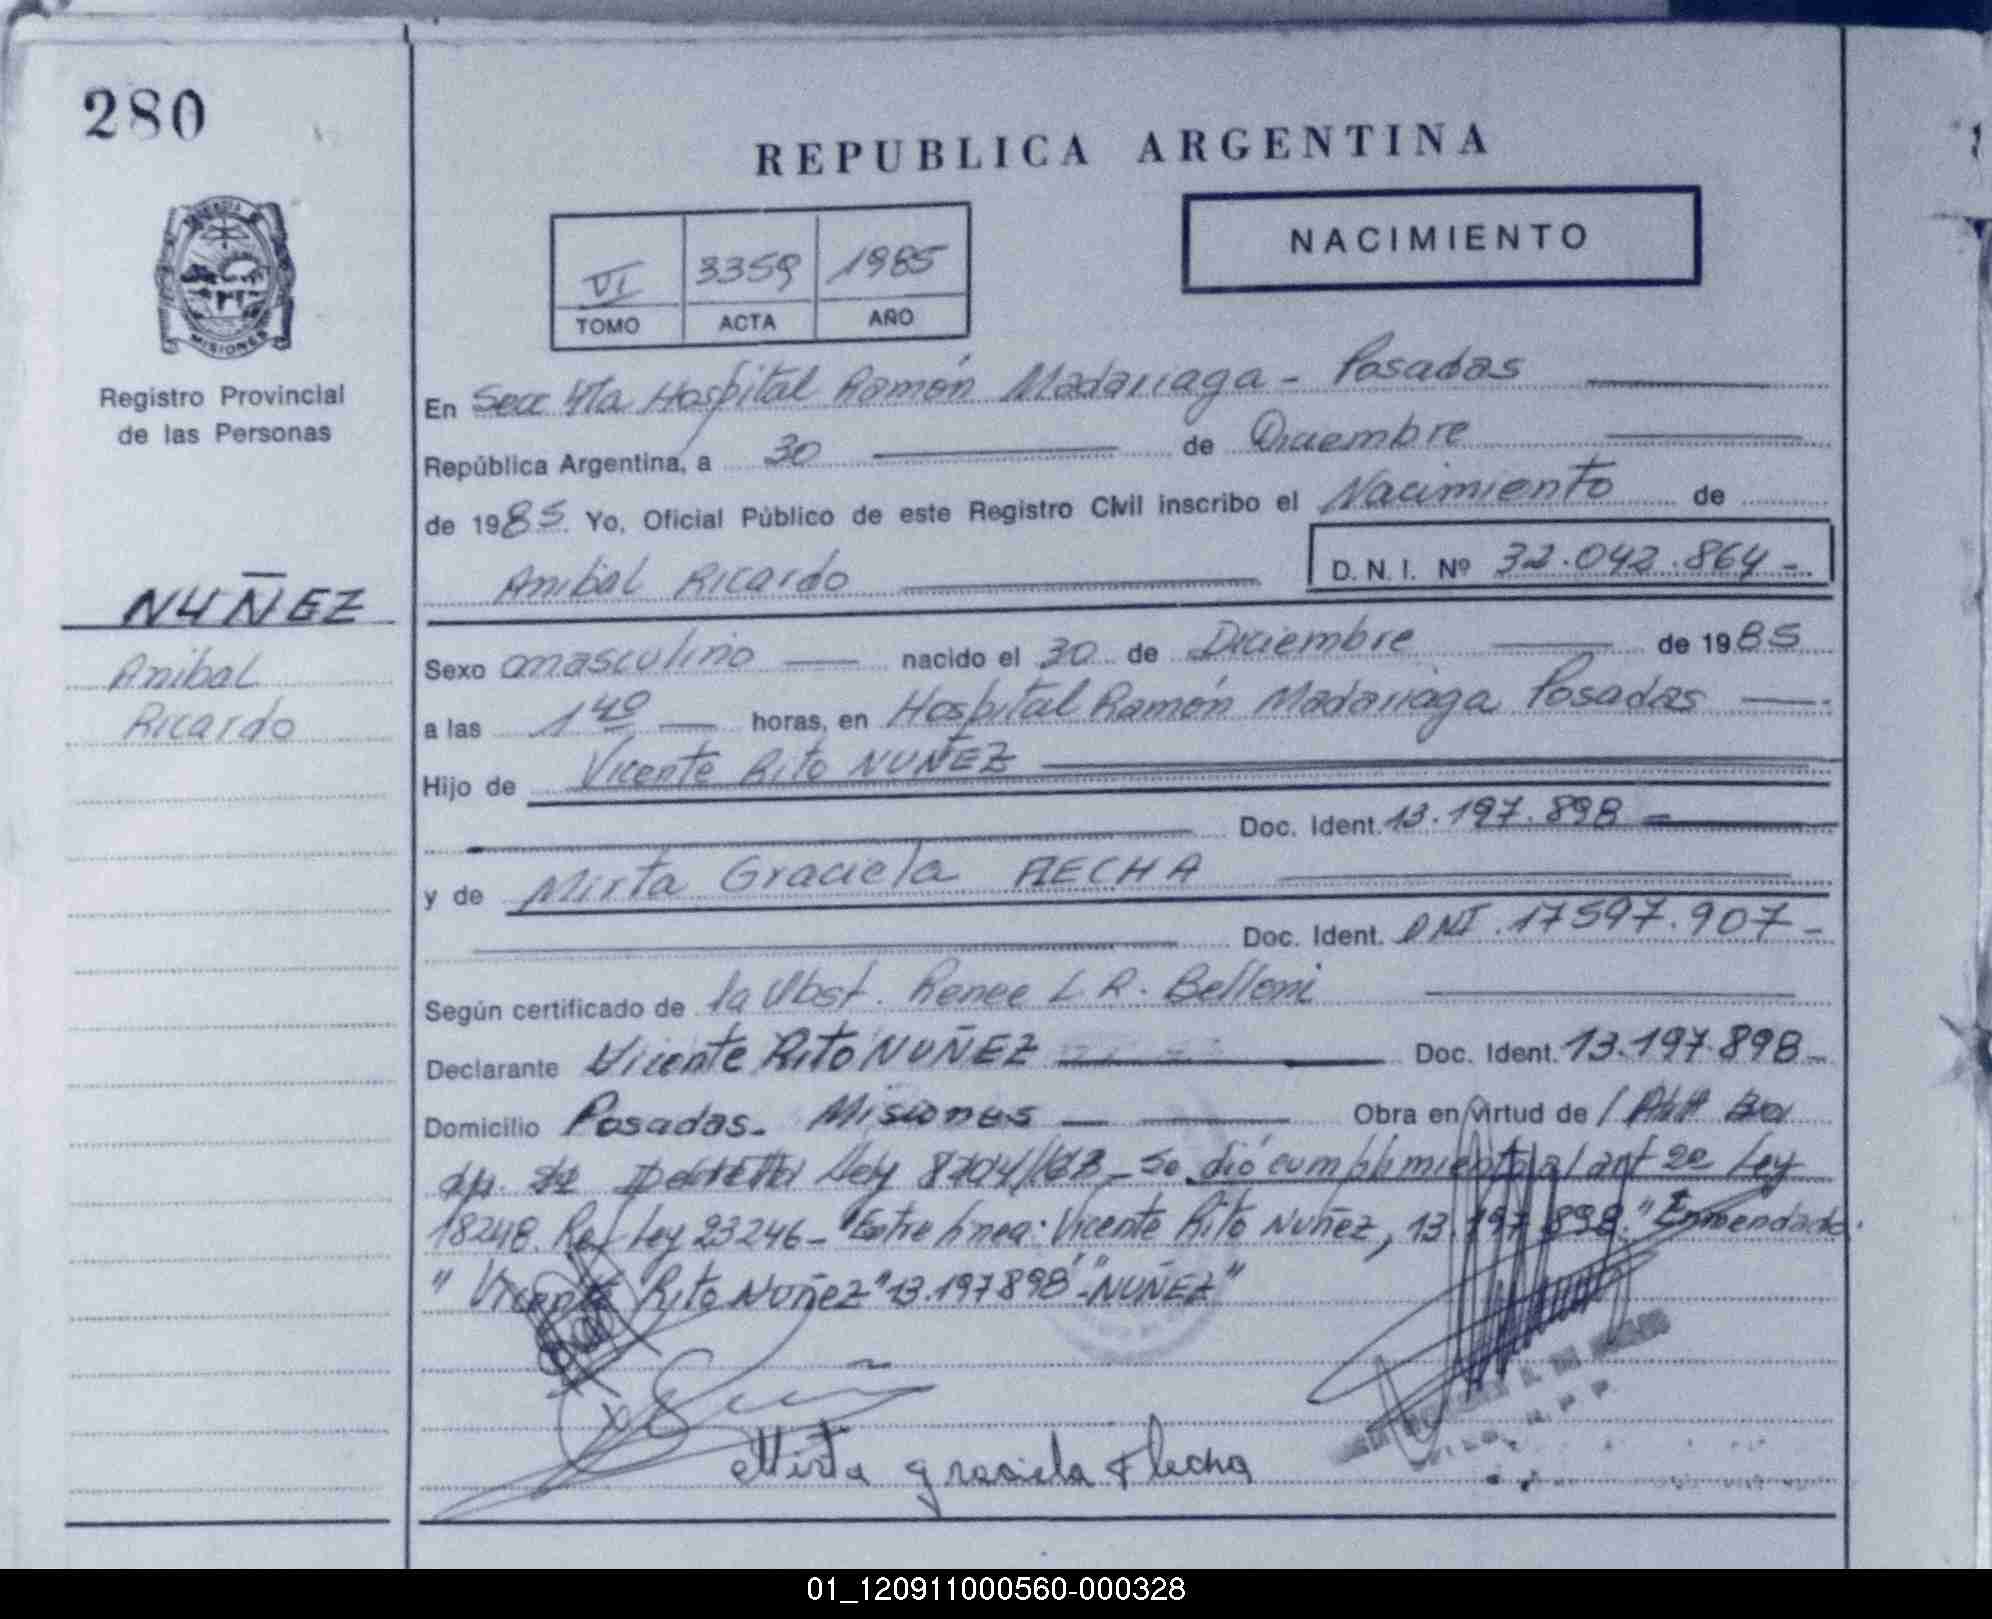 280
REPUBLICA ARGENTINA
NACIMIENTO
VI 3359 1985
TOMO ACTA AÑO
MISIONES
Registro Provincial
de las Personas
NUÑEZ
Anibal
Ricardo
En Secc 4ta Hospital Ramón Madariaga - Posadas
República Argentina, a 30 de Diciembre
de 1985. Yo, Oficial Público de este Registro Civil inscribo el Nacimiento de
Anibal Ricardo D. N. I. Nº 32.042.864-
Sexo masculino nacido el 30 de Diciembre de 1985
a las 1 40 horas, en Hospital Ramón Madariaga Posadas
Hijo de Vicente Rito NUÑEZ
Doc. Ident. 13.197.898
y de Mirta Graciela FLECHA
Doc. Ident. DNI. 17597.907-
Según certificado de la Obst. Renee L R. Belloni
Declarante Vicente Rito NUÑEZ Doc. Ident. 13.197.898
Domicilio Posadas. Misiones Obra en virtud de
Ley 8204/63 - Se dió cumplimiento al art 2º Ley
18248. Ref Ley 23246 - "Entre linea: Vicente Rito Nuñez, 13.197.898." Enmendado.
"Vicente Rito Nuñez" 13.197898" - "NUÑEZ"
Mirta graciela Flecha
01_120911000560-000328